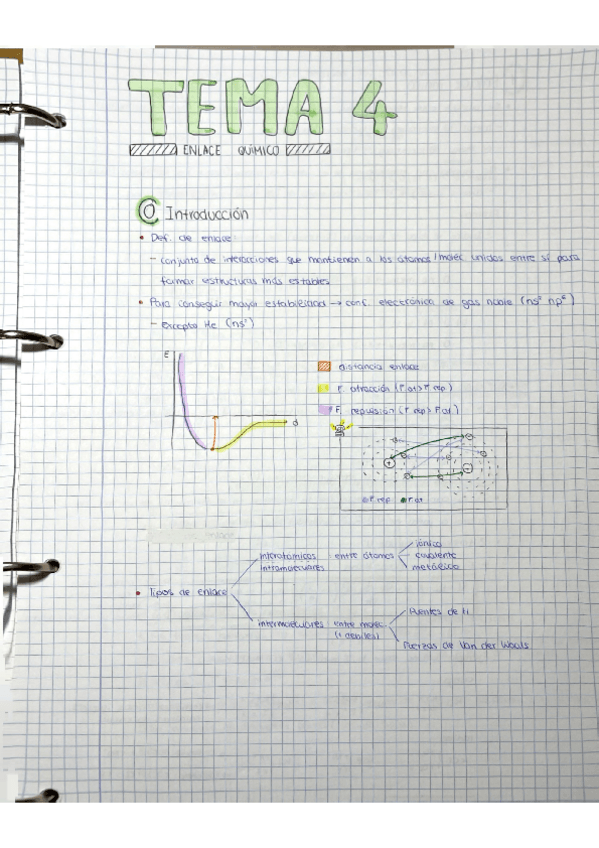 TEMA 4
ENLACE QUÍMICO
0 Introducción
• Def. de enlace:
- Conjunto de interacciones que mantienen a los átomos/moléc. unidos entre sí para
formar estructuras más estables
• Para conseguir mayor estabilidad → conf. electrónica de gas noble (ns² np⁶)
- Excepto He (ns²)
E
d
distancia enlace
F. atracción (F at > F rep)
F. repulsión (F rep > F at)
F rep F at
• Tipos de enlace
interatómicos
intramoleculares
entre átomos
iónico
covalente
metálico
intermoleculares
entre moléc
(+ débiles)
Puentes de H
Fuerzas de Van der Waals